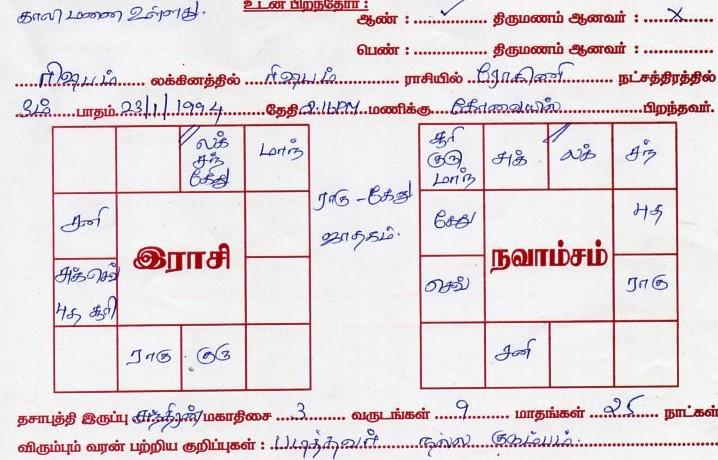 காலி மணை உள்ளது.
உடன் பிறந்தோர் :
ஆண் : ✓ திருமணம் ஆனவர் : x
பெண் : திருமணம் ஆனவர் :
ரிஷபம் லக்கினத்தில் ரிஷபம் ராசியில் ரோகிணி நட்சத்திரத்தில்
3ம் பாதம் 23/1/1994 தேதி 2.16PM மணிக்கு கோவையில் பிறந்தவர்.
லக் சந் கேது
மாந்
சனி
இராசி
சுக் செவ்
புத சூரி
ராகு
குரு
ராகு - கேது
ஜாதகம்.
சூரி குரு மாந்
சுக்
லக்
சந்
கேது
புத
நவாம்சம்
செவ்
ராகு
சனி
தசாபுத்தி இருப்பு சந்திரன் மகாதிசை 3 வருடங்கள் 9 மாதங்கள் 25 நாட்கள்
விரும்பும் வரன் பற்றிய குறிப்புகள் : படித்தவர் நல்ல குடும்பம்.